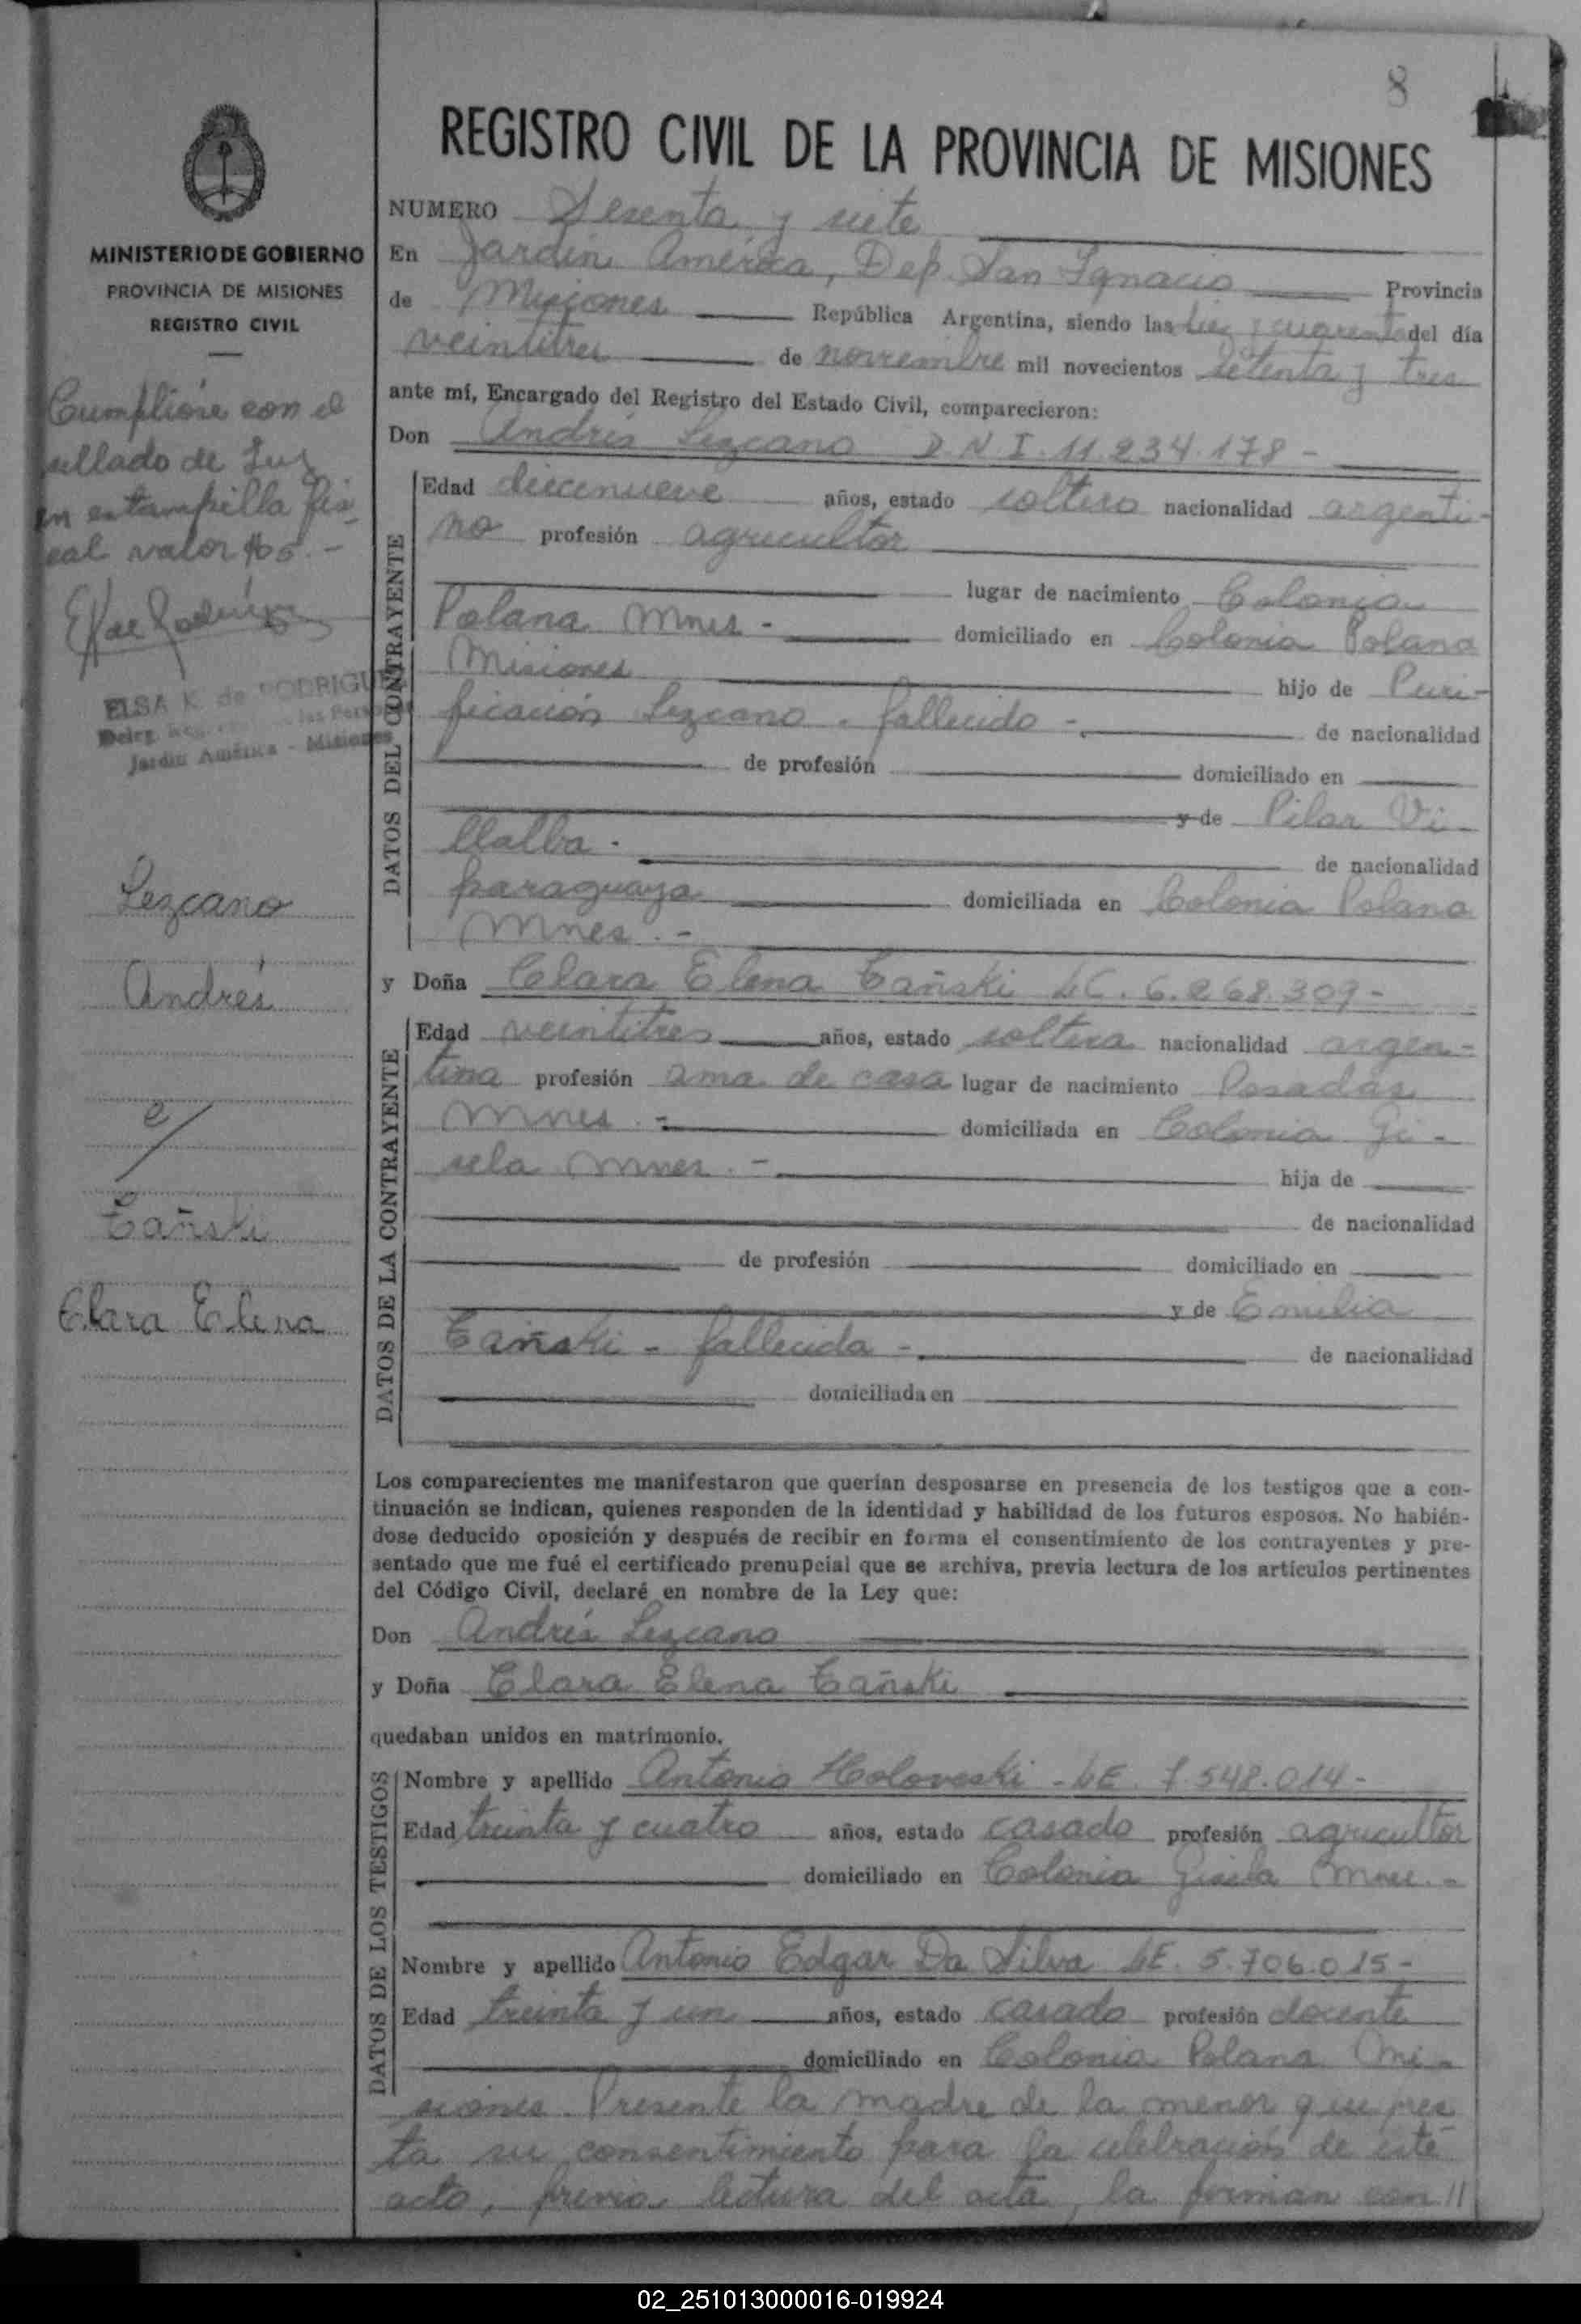 8
REGISTRO CIVIL DE LA PROVINCIA DE MISIONES
NUMERO Sesenta y siete
En Jardín América, Dep. San Ignacio Provincia
de Misiones República Argentina, siendo las diez y cuarenta del día
veintitres de noviembre mil novecientos setenta y tres
ante mí, Encargado del Registro del Estado Civil, comparecieron:
Don Andrés Lezcano D.N.I. 11.234.178 -
DATOS DEL CONTRAYENTE
Edad diecinueve años, estado soltero nacionalidad argenti-
no profesión agricultor
lugar de nacimiento Colonia
Polana Mnes - domiciliado en Colonia Polana
Misiones hijo de Puri-
ficación Lezcano - fallecido - de nacionalidad
de profesión domiciliado en
y de Pilar Vi-
llalba - de nacionalidad
paraguaya domiciliada en Colonia Polana
Mnes. -
y Doña Clara Elena Tañski LC. 6.268.309 -
DATOS DE LA CONTRAYENTE
Edad veintitres años, estado soltera nacionalidad argen-
tina profesión ama de casa lugar de nacimiento Posadas
Mnes. - domiciliada en Colonia Gi-
sela Mnes. - hija de
de nacionalidad
de profesión domiciliado en
y de Emilia
Tañski - fallecida - de nacionalidad
domiciliada en
Los comparecientes me manifestaron que querían desposarse en presencia de los testigos que a con-
tinuación se indican, quienes responden de la identidad y habilidad de los futuros esposos. No habién-
dose deducido oposición y después de recibir en forma el consentimiento de los contrayentes y pre-
sentado que me fué el certificado prenupcial que se archiva, previa lectura de los artículos pertinentes
del Código Civil, declaré en nombre de la Ley que:
Don Andrés Lezcano
y Doña Clara Elena Tañski
quedaban unidos en matrimonio.
DATOS DE LOS TESTIGOS
Nombre y apellido Antonio Holoveski - LE. 7.548.014 -
Edad treinta y cuatro años, estado casado profesión agricultor
domiciliado en Colonia Gisela Mnes. -
Nombre y apellido Antonio Edgar Da Silva LE. 5.706.015 -
Edad treinta y un años, estado casado profesión docente
domiciliado en Colonia Polana Mi-
siones. Presente la madre de la menor que pres
ta su consentimiento para la celebración de este
acto, previa lectura del acta, la firman con //
MINISTERIO DE GOBIERNO
PROVINCIA DE MISIONES
REGISTRO CIVIL
Cumplióse con el
sellado de Ley
en estampilla fis-
cal valor $ 5. -
ELSA K. de RODRIGUEZ
las Personas
Jardín América - Misiones
Lezcano
Andrés
c/
Tañski
Clara Elena
02_251013000016-019924